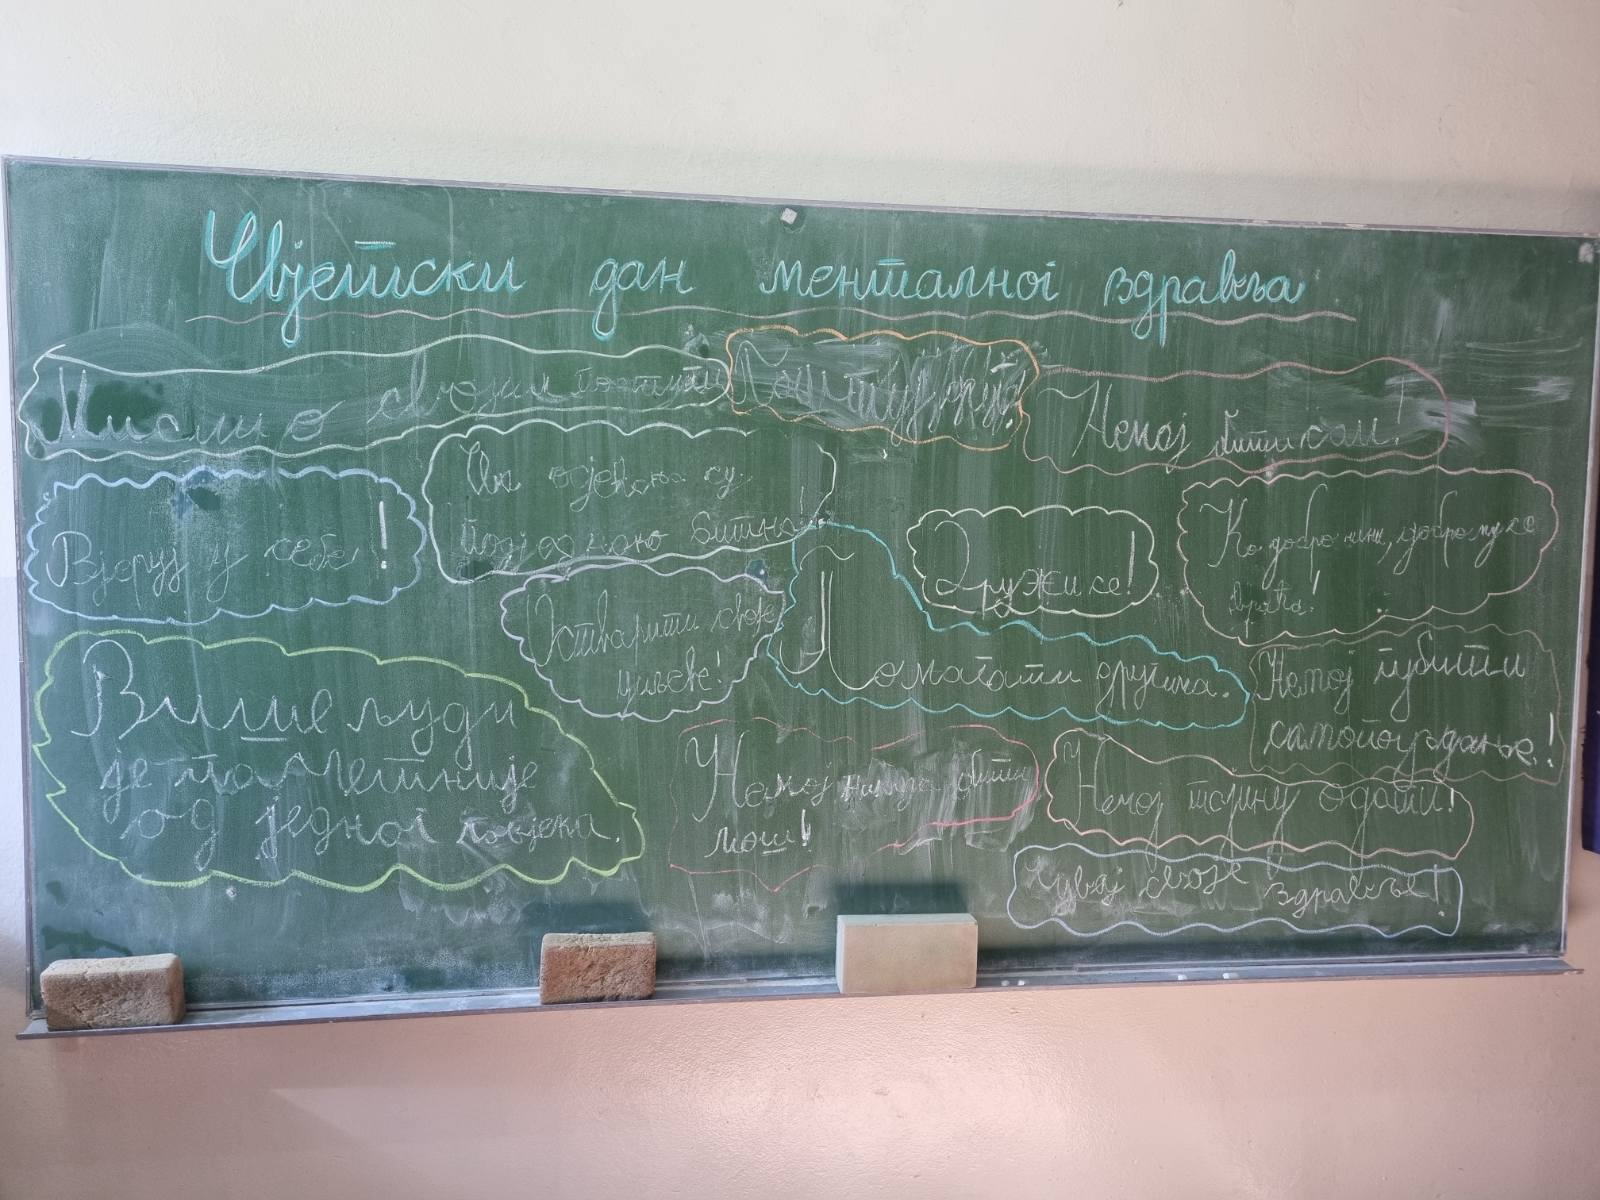 Свјетски дан менталног здравља
Мисли о својим
Поштуј друге!
Немој бити сам!
Сва осјећања су
подједнако битна!
Вјеруј у себе!
Дружи се!
Ко добро чини, добро му се
враћа!
Остварити своје
циљеве!
Помагати другима.
Немој губити
самопоуздање!
Више људи
је паметније
од једног човјека.
Немој никада бити
лош!
Немој тајну одати!
Чувај своје здравље!